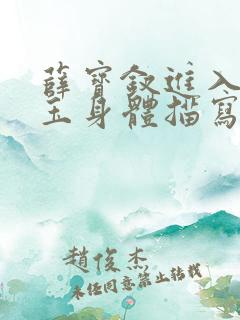 薛寶釵進入
玉身體描寫
趙俊杰
未經同意禁止轉載